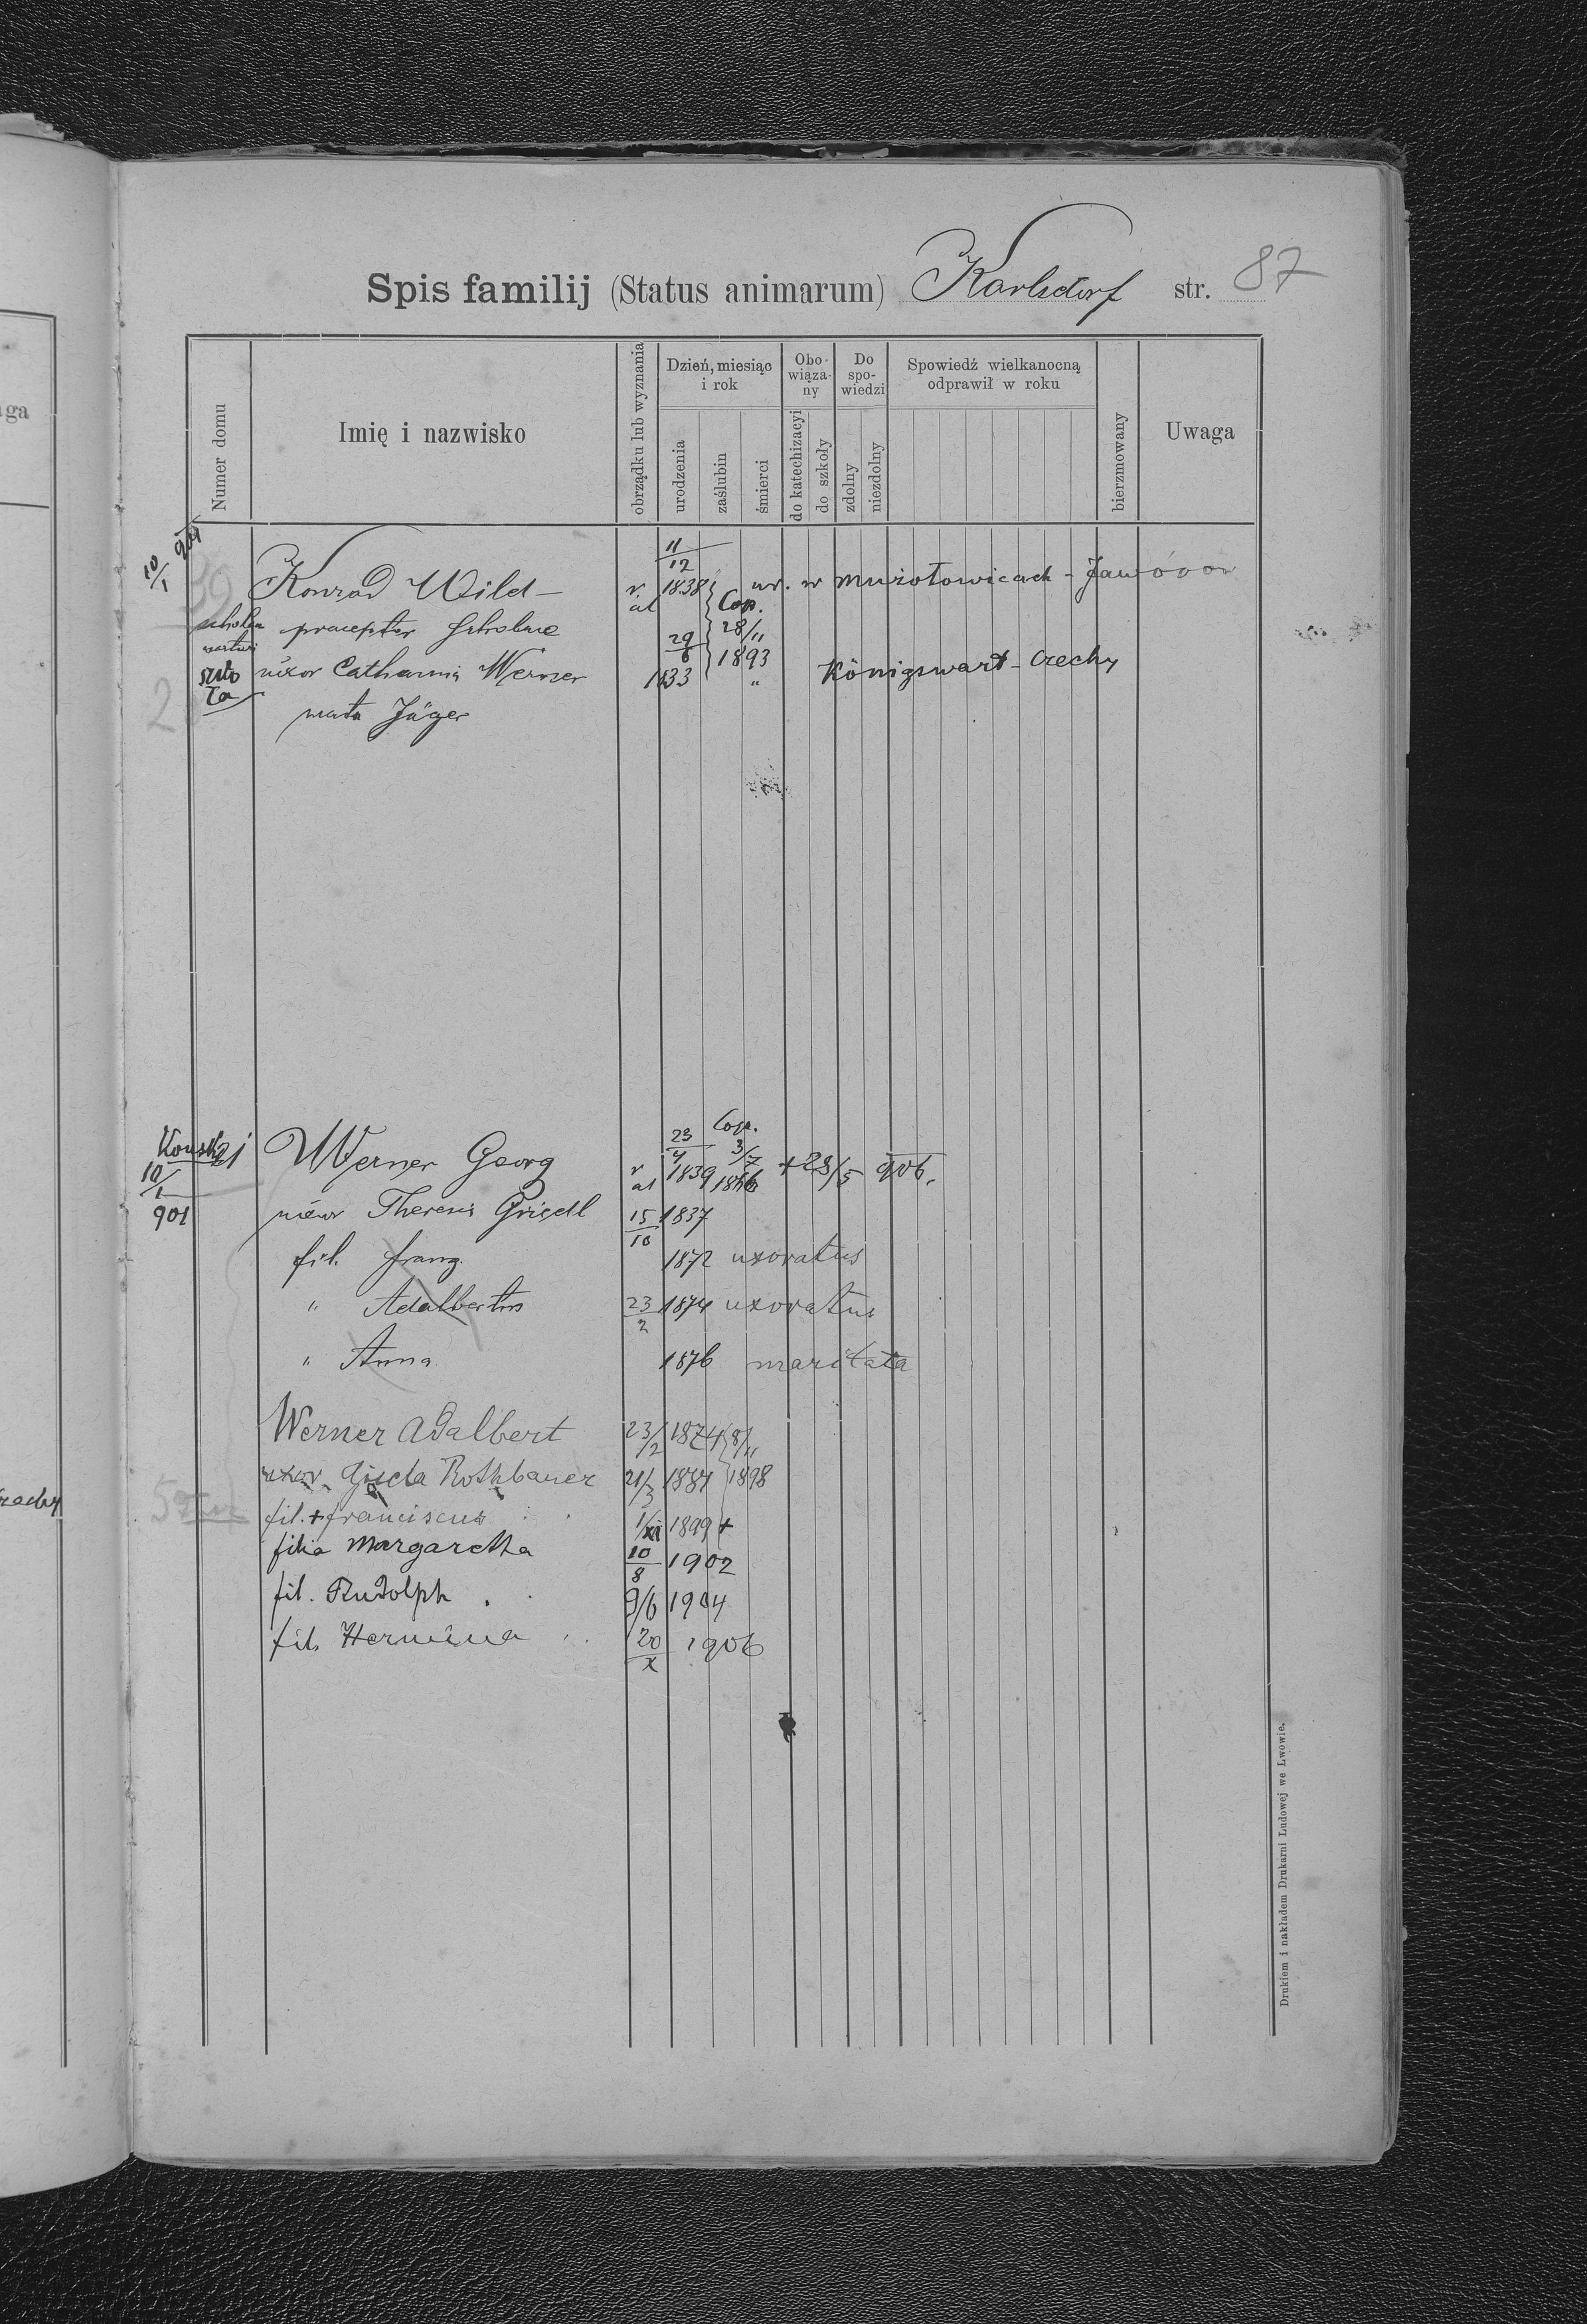 Spis familij (Status animarum) Karlsdorf str. 87
Numer domu
Imię i nazwisko
obrządku lub wyznania
Dzień, miesiąc i rok
urodzenia
zaślubin
śmierci
Obo-wiąza-ny
do katechizacyi
do szkoły
Do spo-wiedzi
zdolny
niezdolny
Spowiedź wielkanocną odprawił w roku
bierzmowany
Uwaga
10/1 901
Konrad Wild – 11/12 1838 ur. w Mużołowicach - Jaworów
praeceptor scholae Cop. 28/11 1893
uxor Catharina Werner 29/6 1833 " Königswart - Czechy
nata Jäger
szkoła
21 Werner Georg 23/4 1839 Cop. 3/7 +28/5 906.
10/1 901
uxor Theresia 15/10 1837
fil. Franz 1872 uxoratus
" Adalbertus 23/2 1874 uxoratus
" Anna 1876 maritata
Werner Adalbert 23/2 1874 8/11 1898
uxor Gisela Rothbauer 21/3
fil. + Franciscus 1/XI 1899 +
filia Margaretha 10/8 1902
fil. Rudolph 9/6 1904
fil. Hermina 20/X 1906
Drukiem i nakładem Drukarni Ludowej we Lwowie.